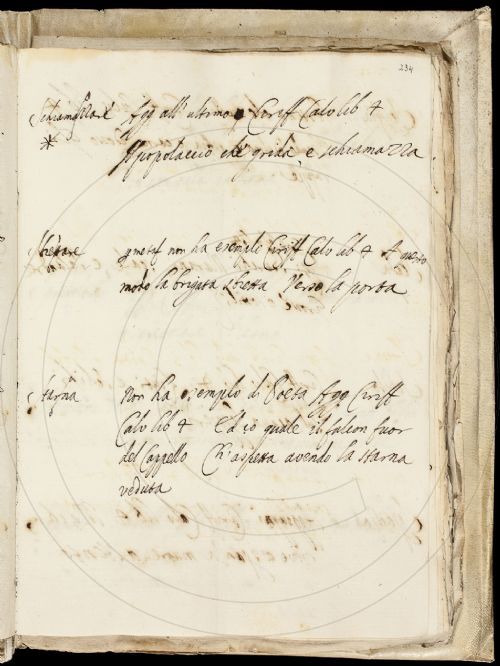 234
schiamazzare agg all' ultimo Ciriff Calv lib 4
* Il popolaccio che grida, e schiamazza
sbiettare q metaf non ha esemple Ciriff Calv lib 4 A questo
modo la brigata sbietta Verso la porta
starna Non ha esemplo di Poeta Agg Ciriff
Calv lib 4 Ed io quale il falcon fuor
del Cappello Ch' aspetta avendo la starna
veduta